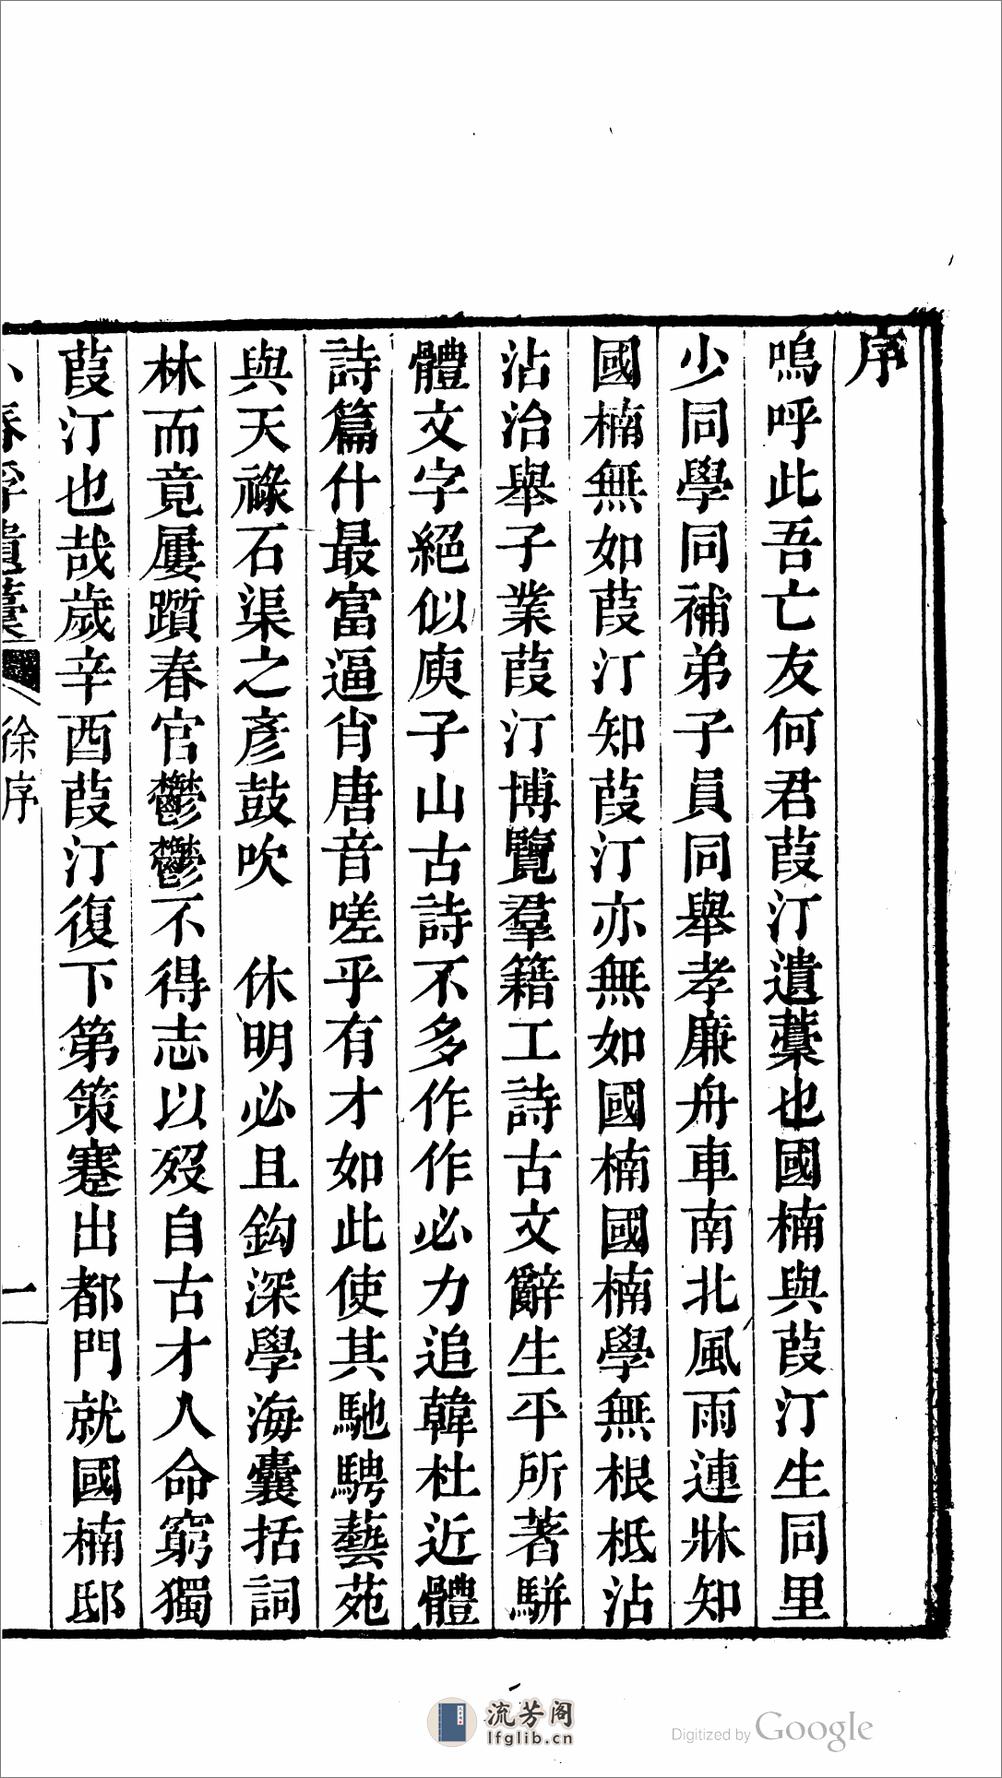 序
嗚呼此吾亡友何君葭汀遺藁也國楠與葭汀生同里
少同學同補弟子員同舉孝廉舟車南北風雨連牀知
國楠無如葭汀知葭汀亦無如國楠國楠學無根柢沾
沾治舉子業葭汀博覽羣籍工詩古文辭生平所著駢
體文字絕似庾子山古詩不多作作必力追韓杜近體
詩篇什最富逼肖唐音嗟乎有才如此使其馳騁藝苑
與天祿石渠之彥鼓吹　休明必且鈎深學海囊括詞
林而竟屢躓春官鬱鬱不得志以歿自古才人命窮獨
葭汀也哉歲辛酉葭汀復下第策蹇出都門就國楠邸
遺藁 徐序 一
流芳阁
lfglib.cn
Digitized by Google